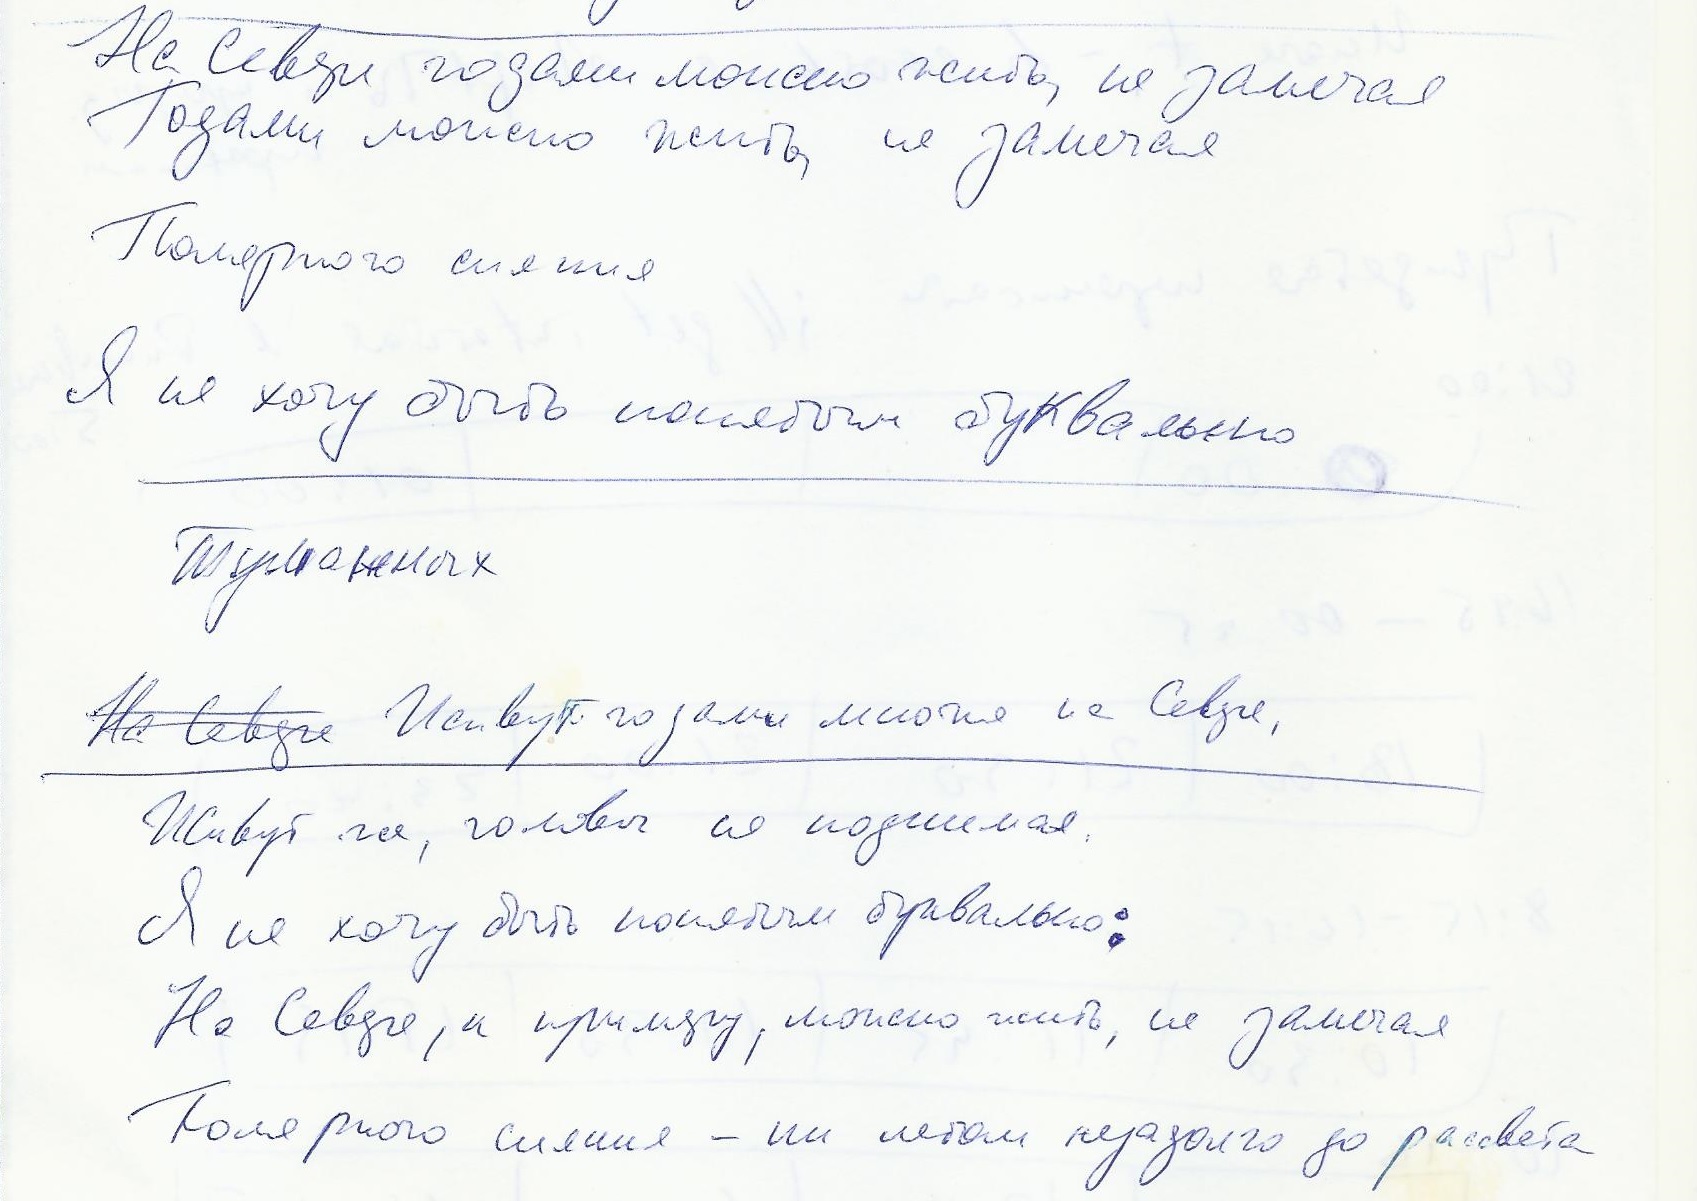 На Севере годами можно жить, не замечая
Годами можно жить, не замечая
Полярного сияния
Я не хочу быть понятым буквально
Туманных
На Севере Живут годами многие на Севере,
Живут же, головы не поднимая.
Я не хочу быть понятым буквально:
На Севере, к примеру, можно жить, не замечая
Полярного сияния – ни летом незадолго до рассвета